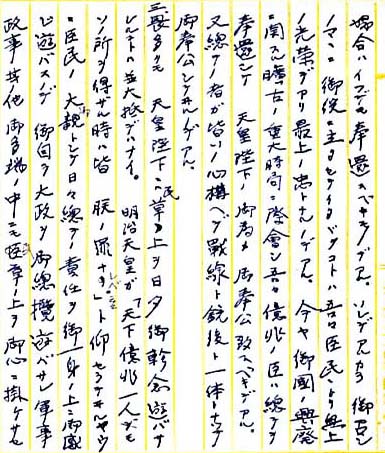 場合ハイツデモ奉還スベキデアル。ソレデアルカラ御召シ
ノママニ御役ニ立タセテイタダクコトハ吾々臣民ニトリ無上
ノ光栄デアリ最上ノ忠トナルノデアル。今ヤ御國ノ興廃
ニ関スル曠古ノ重大時局ニ際會シ吾々億兆ノ臣ハ總テヲ
奉還シテ 天皇陛下ノ御為メ御奉公致スベキデアル。
又總テノ者ガ皆此ノ心構ヘデ戰線ト銃後ト一体トナッテ
御奉公シテヰルノデアル。
三、畏多クモ 天皇陛下ニハ民草ノ上ヲ日夕御軫念遊バサ
レルコトハ並大抵デハナイ。 明治天皇ガ「天下億兆一人ガモ
ソノ所ヲ得ザル時ハ皆 朕ノ
ト仰セラレタルヤウ
ニ臣民ノ大親トシテ日々總テノ責任ヲ御一身ノ上ニ御感
ジ遊バスデ 御自ラ大政ヲ御總攬遊バサレ軍事
政事其ノ他御多端ノ中ニモ
ノ上ヲ御心ニ掛ケサセ